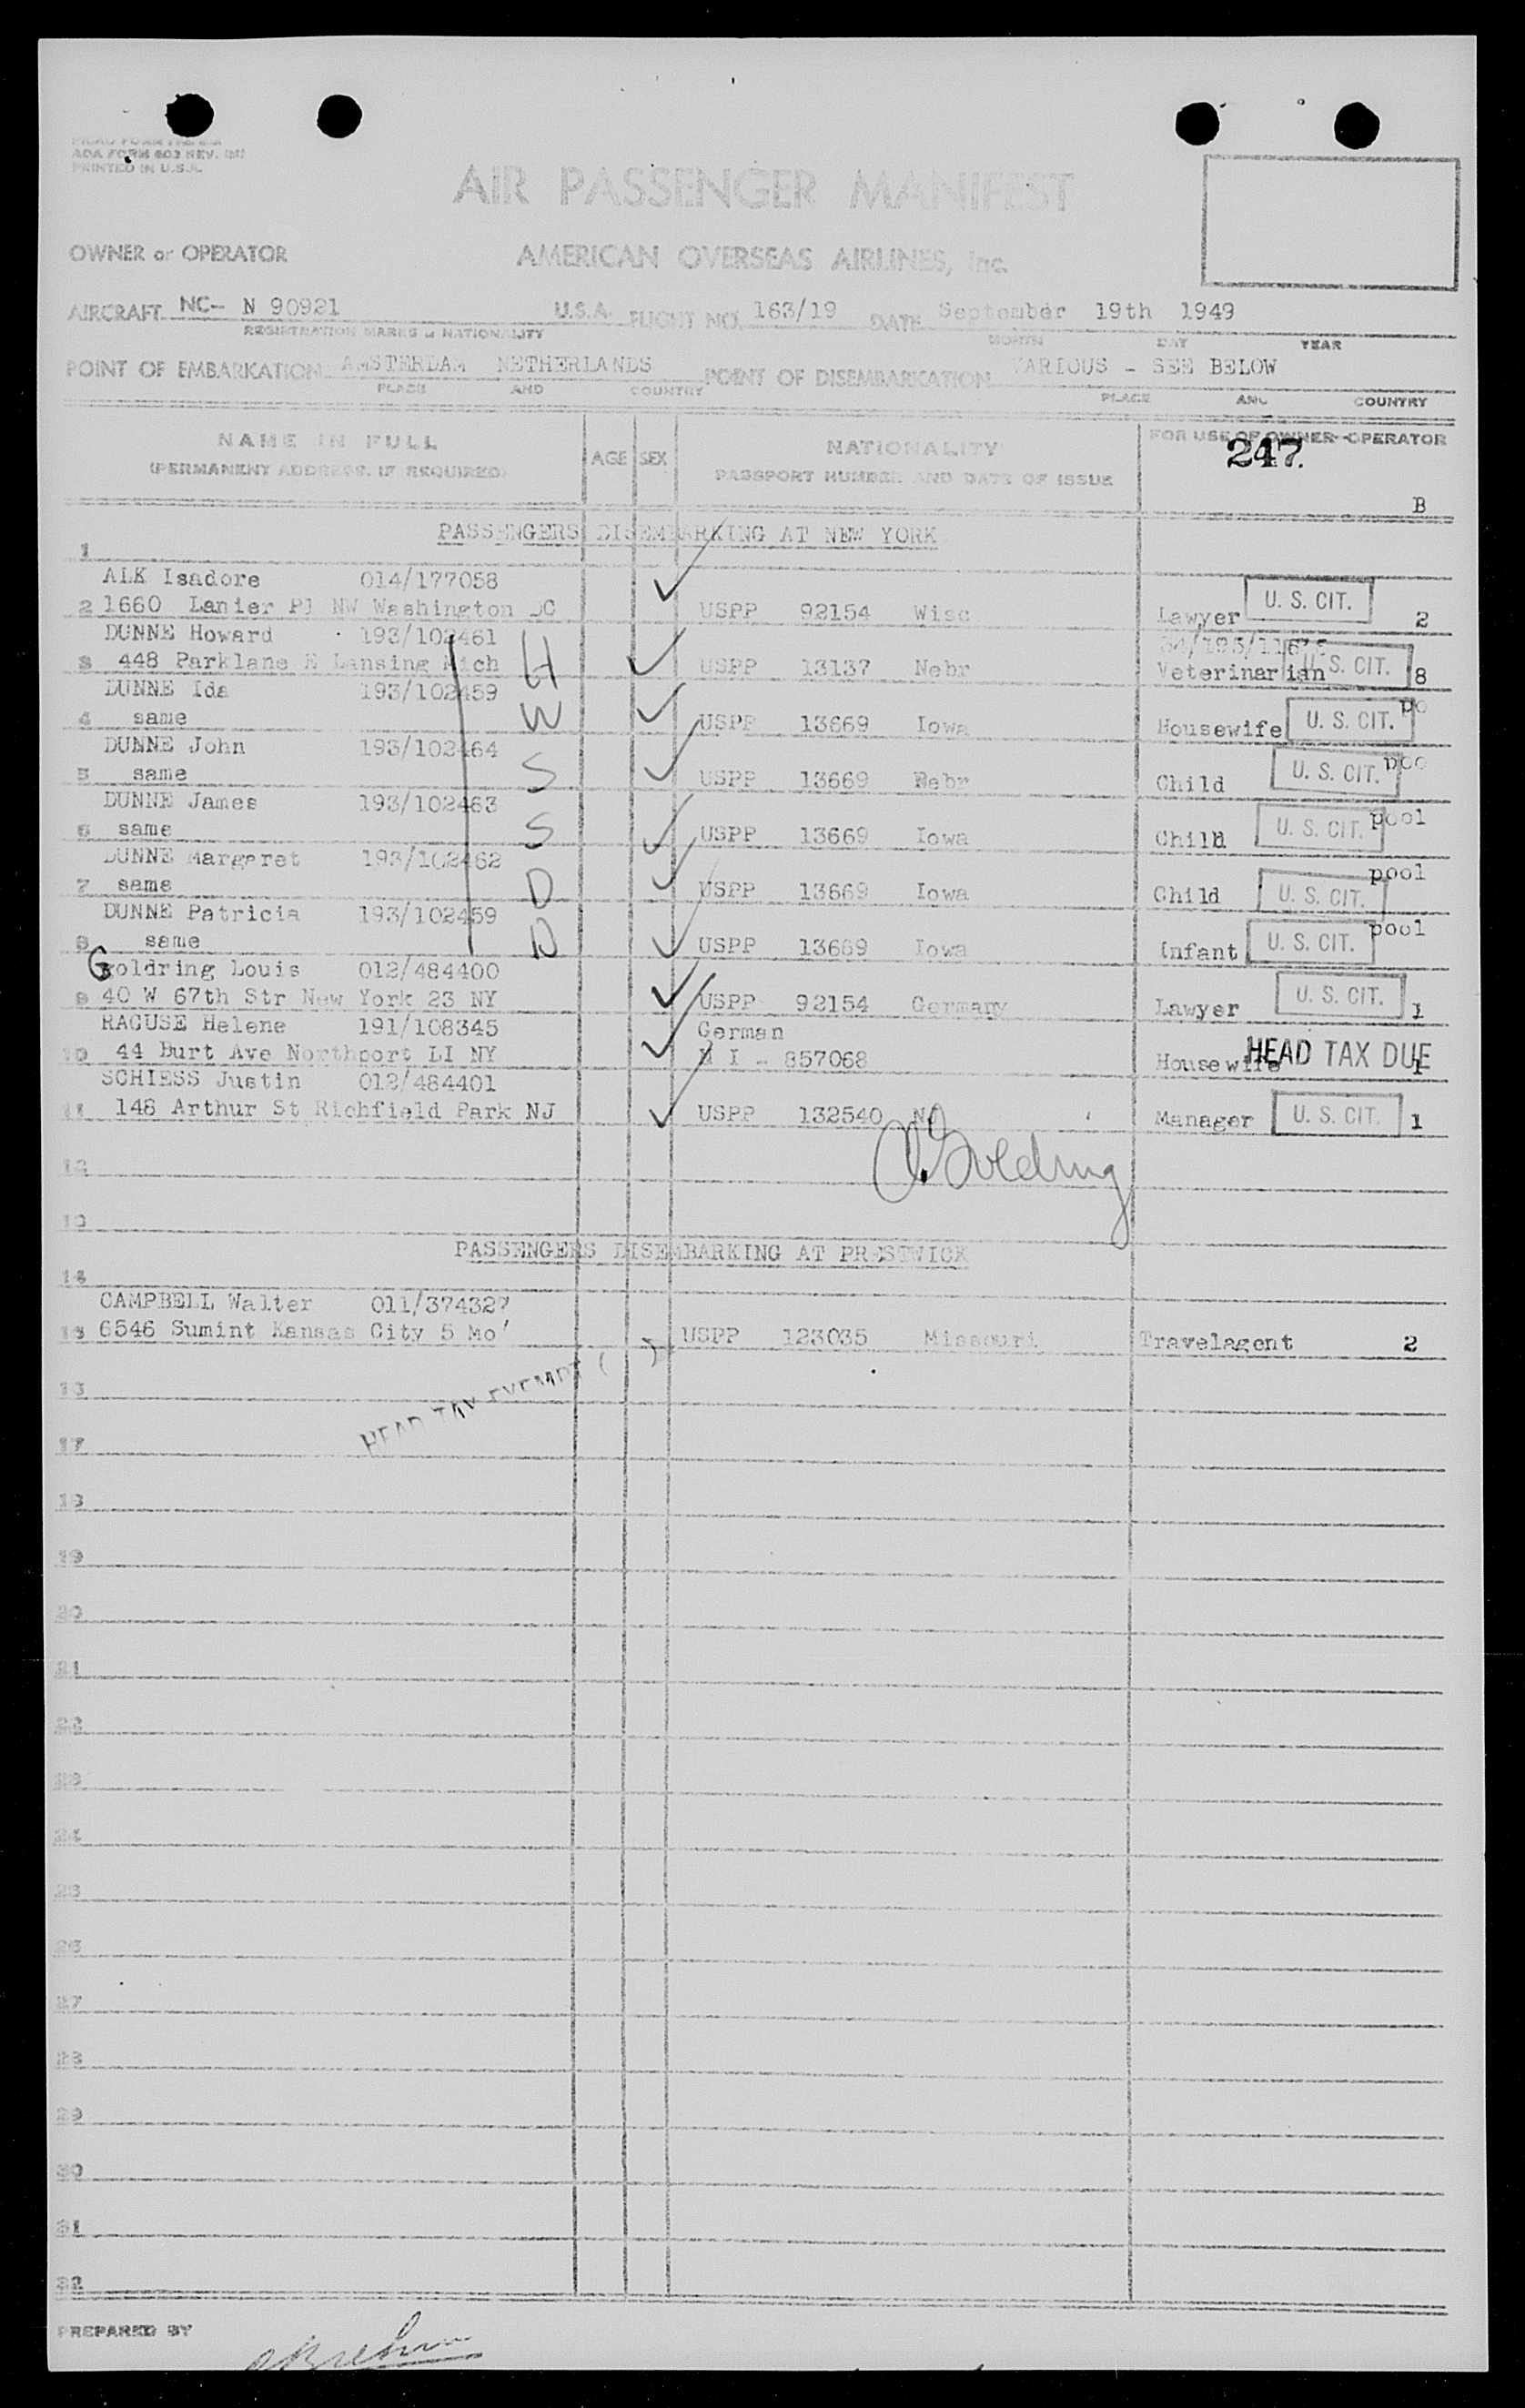 ADA FORM 603 REV.
PRINTED IN U.S.A.
AIR PASSENGER MANIFEST
OWNER or OPERATOR AMERICAN OVERSEAS AIRLINES, Inc.
AIRCRAFT NC- N 90921 U.S.A. FLIGHT NO. 163/19 DATE September 19th 1949
REGISTRATION MARKS & NATIONALITY MONTH DAY YEAR
POINT OF EMBARKATION AMSTERDAM NETHERLANDS POINT OF DISEMBARKATION VARIOUS - SEE BELOW
PLACE AND COUNTRY PLACE AND COUNTRY
NAME IN FULL AGE SEX NATIONALITY FOR USE OF OWNER-OPERATOR
(PERMANENT ADDRESS, IF REQUIRED) PASSPORT NUMBER AND DATE OF ISSUE 247.
B
PASSENGERS DISEMBARKING AT NEW YORK
1
ALK Isadore 014/177058
2 1660 Lanier Pl NW Washington DC USPP 92154 Wisc Lawyer U. S. CIT. 2
DUNNE Howard 193/102461
3 448 Parklane E Lansing Mich H USPP 13137 Nebr Veterinarian U. S. CIT. 8
DUNNE Ida 193/102459
4 same W USPP 13669 Iowa Housewife U. S. CIT. po
DUNNE John 193/102464
5 same S USPP 13669 Nebr Child U. S. CIT. poo
DUNNE James 193/102463
6 same S USPP 13669 Iowa Child U. S. CIT. pool
DUNNE Margaret 193/102462
7 same D USPP 13669 Iowa Child U. S. CIT. pool
DUNNE Patricia 193/102459
8 same D USPP 13669 Iowa Infant U. S. CIT. pool
Goldring Louis 012/484400
9 40 W 67th Str New York 23 NY USPP 92154 Germany Lawyer U. S. CIT. 1
RAGUSE Helene 191/108345 German
10 44 Burt Ave Northport LI NY I - 857068 Housewife HEAD TAX DUE 1
SCHIESS Justin 012/484401
11 148 Arthur St Richfield Park NJ USPP 132540 NJ Manager U. S. CIT. 1
12
13
PASSENGERS DISEMBARKING AT PRESTWICK
14
CAMPBELL Walter 011/374327
15 6546 Sumint Kansas City 5 Mo' USPP 123035 Missouri Travelagent 2
HEAD TAX EXEMPT ( )
16
17
18
19
20
21
22
23
24
25
26
27
28
29
30
31
32
PREPARED BY